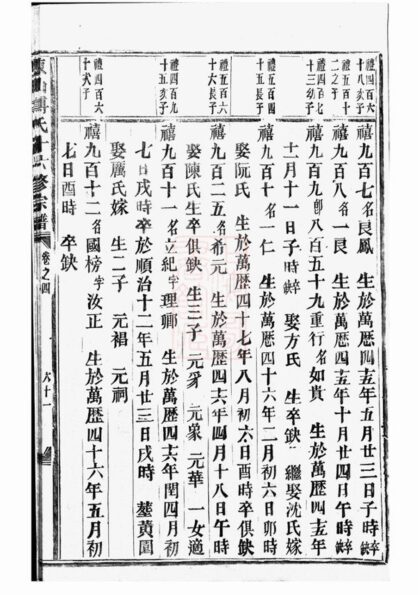 禮四百六十八亥子
禧九百七名良鳳 生於萬曆四十五年五月廿三日子時卒缺
禮五百十二之子
禧九百八名一良 生於萬曆四十五年十月廿四日午時卒缺
禮四百七十三幼子
禧九百九卽八百五十九重行名如貴 生於萬曆四十五年
十二月十一日子時卒缺 娶方氏 生卒缺 繼娶沈氏嫁
禮五百四十五長子
禧九百十名一仁 生於萬曆四十六年二月初六日卯時
娶阮氏 生於萬曆四十七年八月初六日酉時卒俱缺
禮五百六十六長子
禧九百二五名希元 生於萬曆四十六年四月十八日午時
娶陳氏生卒俱缺 生三子 元豸 元象 元華 一女適
禮四百九十五亥子
禧九百十一名立紀字理卿 生於萬曆四十六年閏四月初
七日戌時卒於順治十二年五月廿三日戌時 塟黄閶
娶厲氏嫁 生二子 元裮 元祠
禮四百六十六子
禧九百十二名國榜字汝正 生於萬曆四十六年五月初
七日酉時 卒缺
氏十六修宗譜
卷之四
六十一